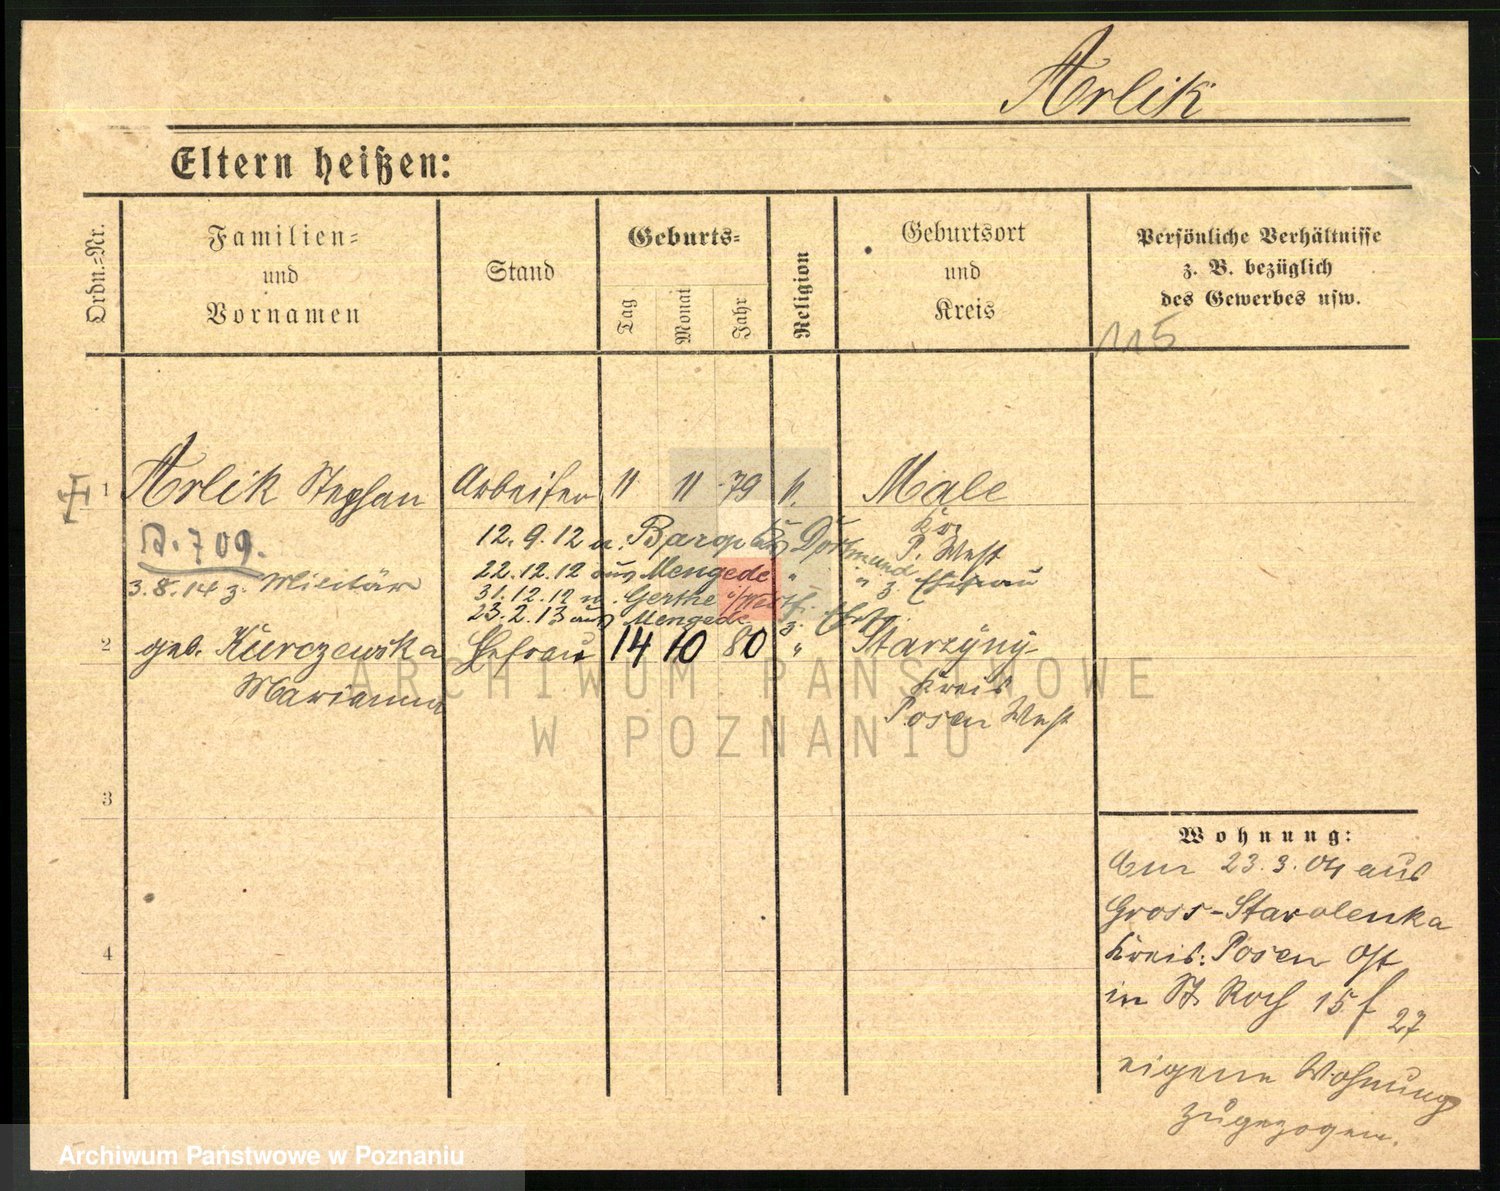 Arlik
Eltern heißen:
Ordn.=Nr.
Familien=
und
Vornamen
Stand
Geburts=
Tag
Monat
Jahr
Religion
Geburtsort
und
Kreis
Persönliche Verhältnisse
z. B. bezüglich
des Gewerbes usw.
115
1 Arlik Stephan Arbeiter 11 11 79 Male
Krs
P. West
709.
12. 9. 12 n. Barop bei Dortmund
22.12.12 aus Mengede " " z. Ehefrau
3.8.14 z. Militär
31.12.12 n. Gerthe i/Westf.
23.2.13 aus Mengede z. Ehefr.
2 geb. Kurczewska Ehefrau 14 10 80 " Starzyny
Marianna
Kreis
Posen West
3
4
Wohnung:
Am 23.3.04 aus
Gross-Starolenka
Kreis: Posen Ost
in St Roch 15 f
27
eigene Wohnung
zugezogen.
ARCHIWUM PAŃSTWOWE
W POZNANIU
Archiwum Państwowe w Poznaniu